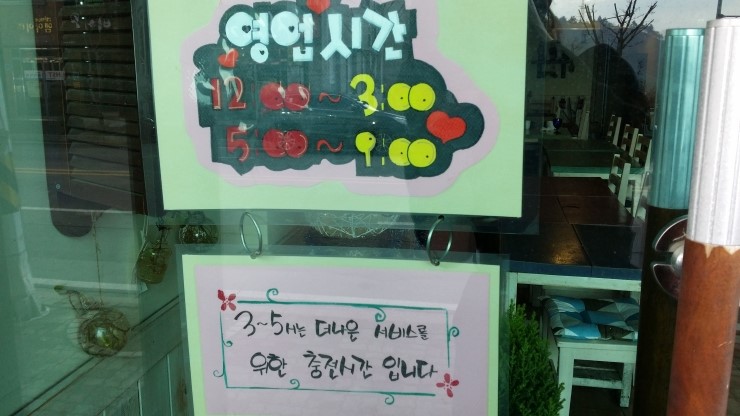 영업시간
12:00 ~ 3:00
5:00 ~ 9:00
3~5시는 더나은 서비스를
위한 충전시간 입니다